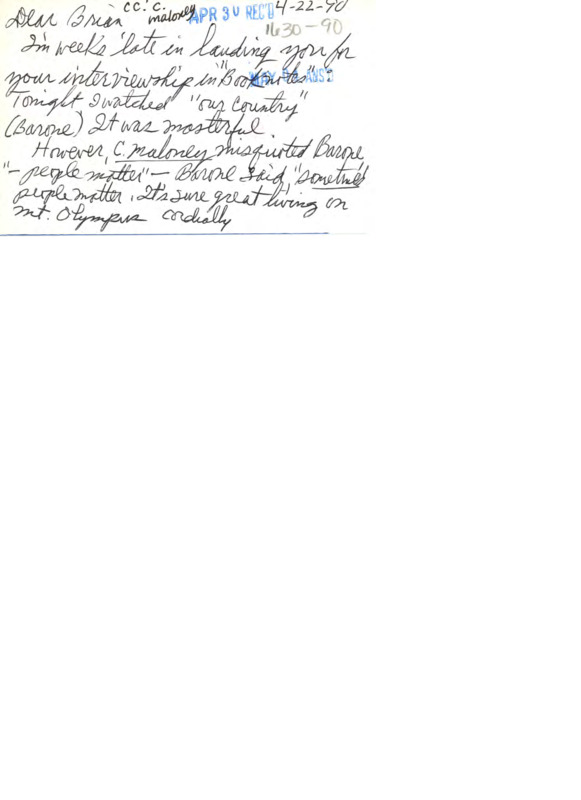 Dear Brian cc: C. maloney APR 30 REC'D 4-22-90
1630-90
I'm weeks late in lauding you for
your interviewship in "Booknotes"
Tonight I watched "our country"
(Barone) It was masterful.
However, C. maloney misquoted Barone
"- people matter" - Barone said "sometimes
people matter. It's sure great living on
mt. Olympus cordially